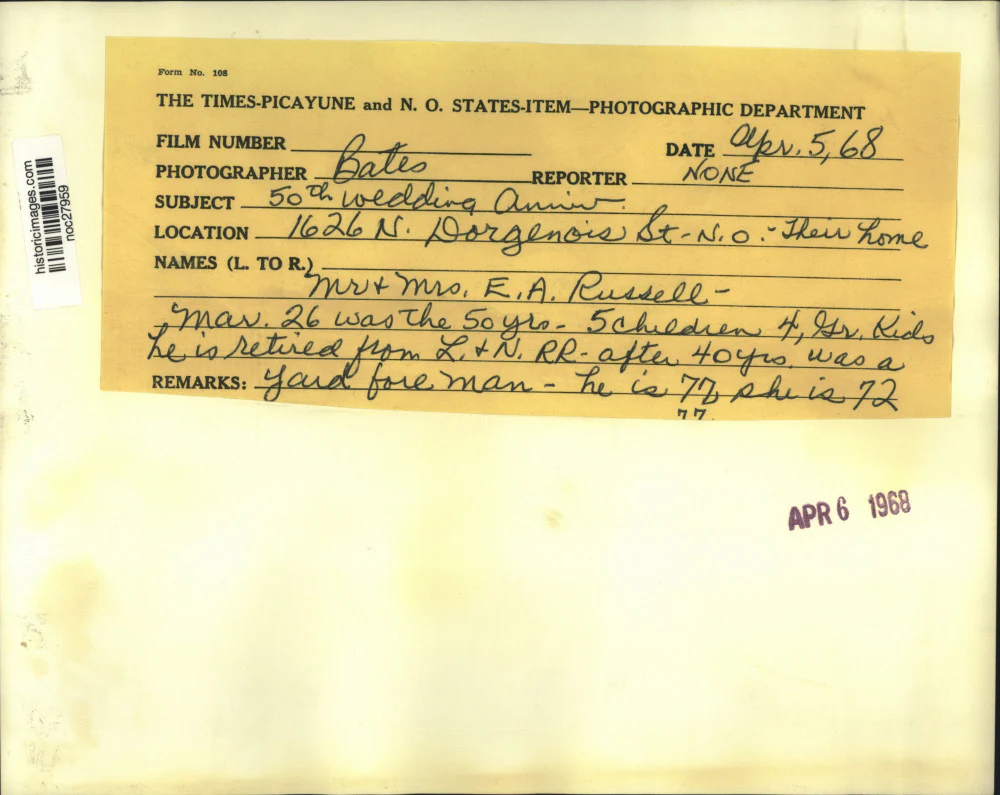 Form No. 108
THE TIMES-PICAYUNE and N. O. STATES-ITEM—PHOTOGRAPHIC DEPARTMENT
FILM NUMBER
DATE Apr. 5, 68
PHOTOGRAPHER Bates REPORTER NONE
SUBJECT 50th wedding Anniv.
LOCATION 1626 N. Dorgenois St - N.O. - Their home
NAMES (L. TO R.)
Mr + Mrs. E. A. Russell -
Mar. 26 was the 50 yrs - 5 children 4, Gr. Kids
he is retired from L. + N. RR - after 40 yrs. was a
REMARKS: Yard fore man - he is 77, she is 72
77
APR 6 1968
historicimages.com
noc27959